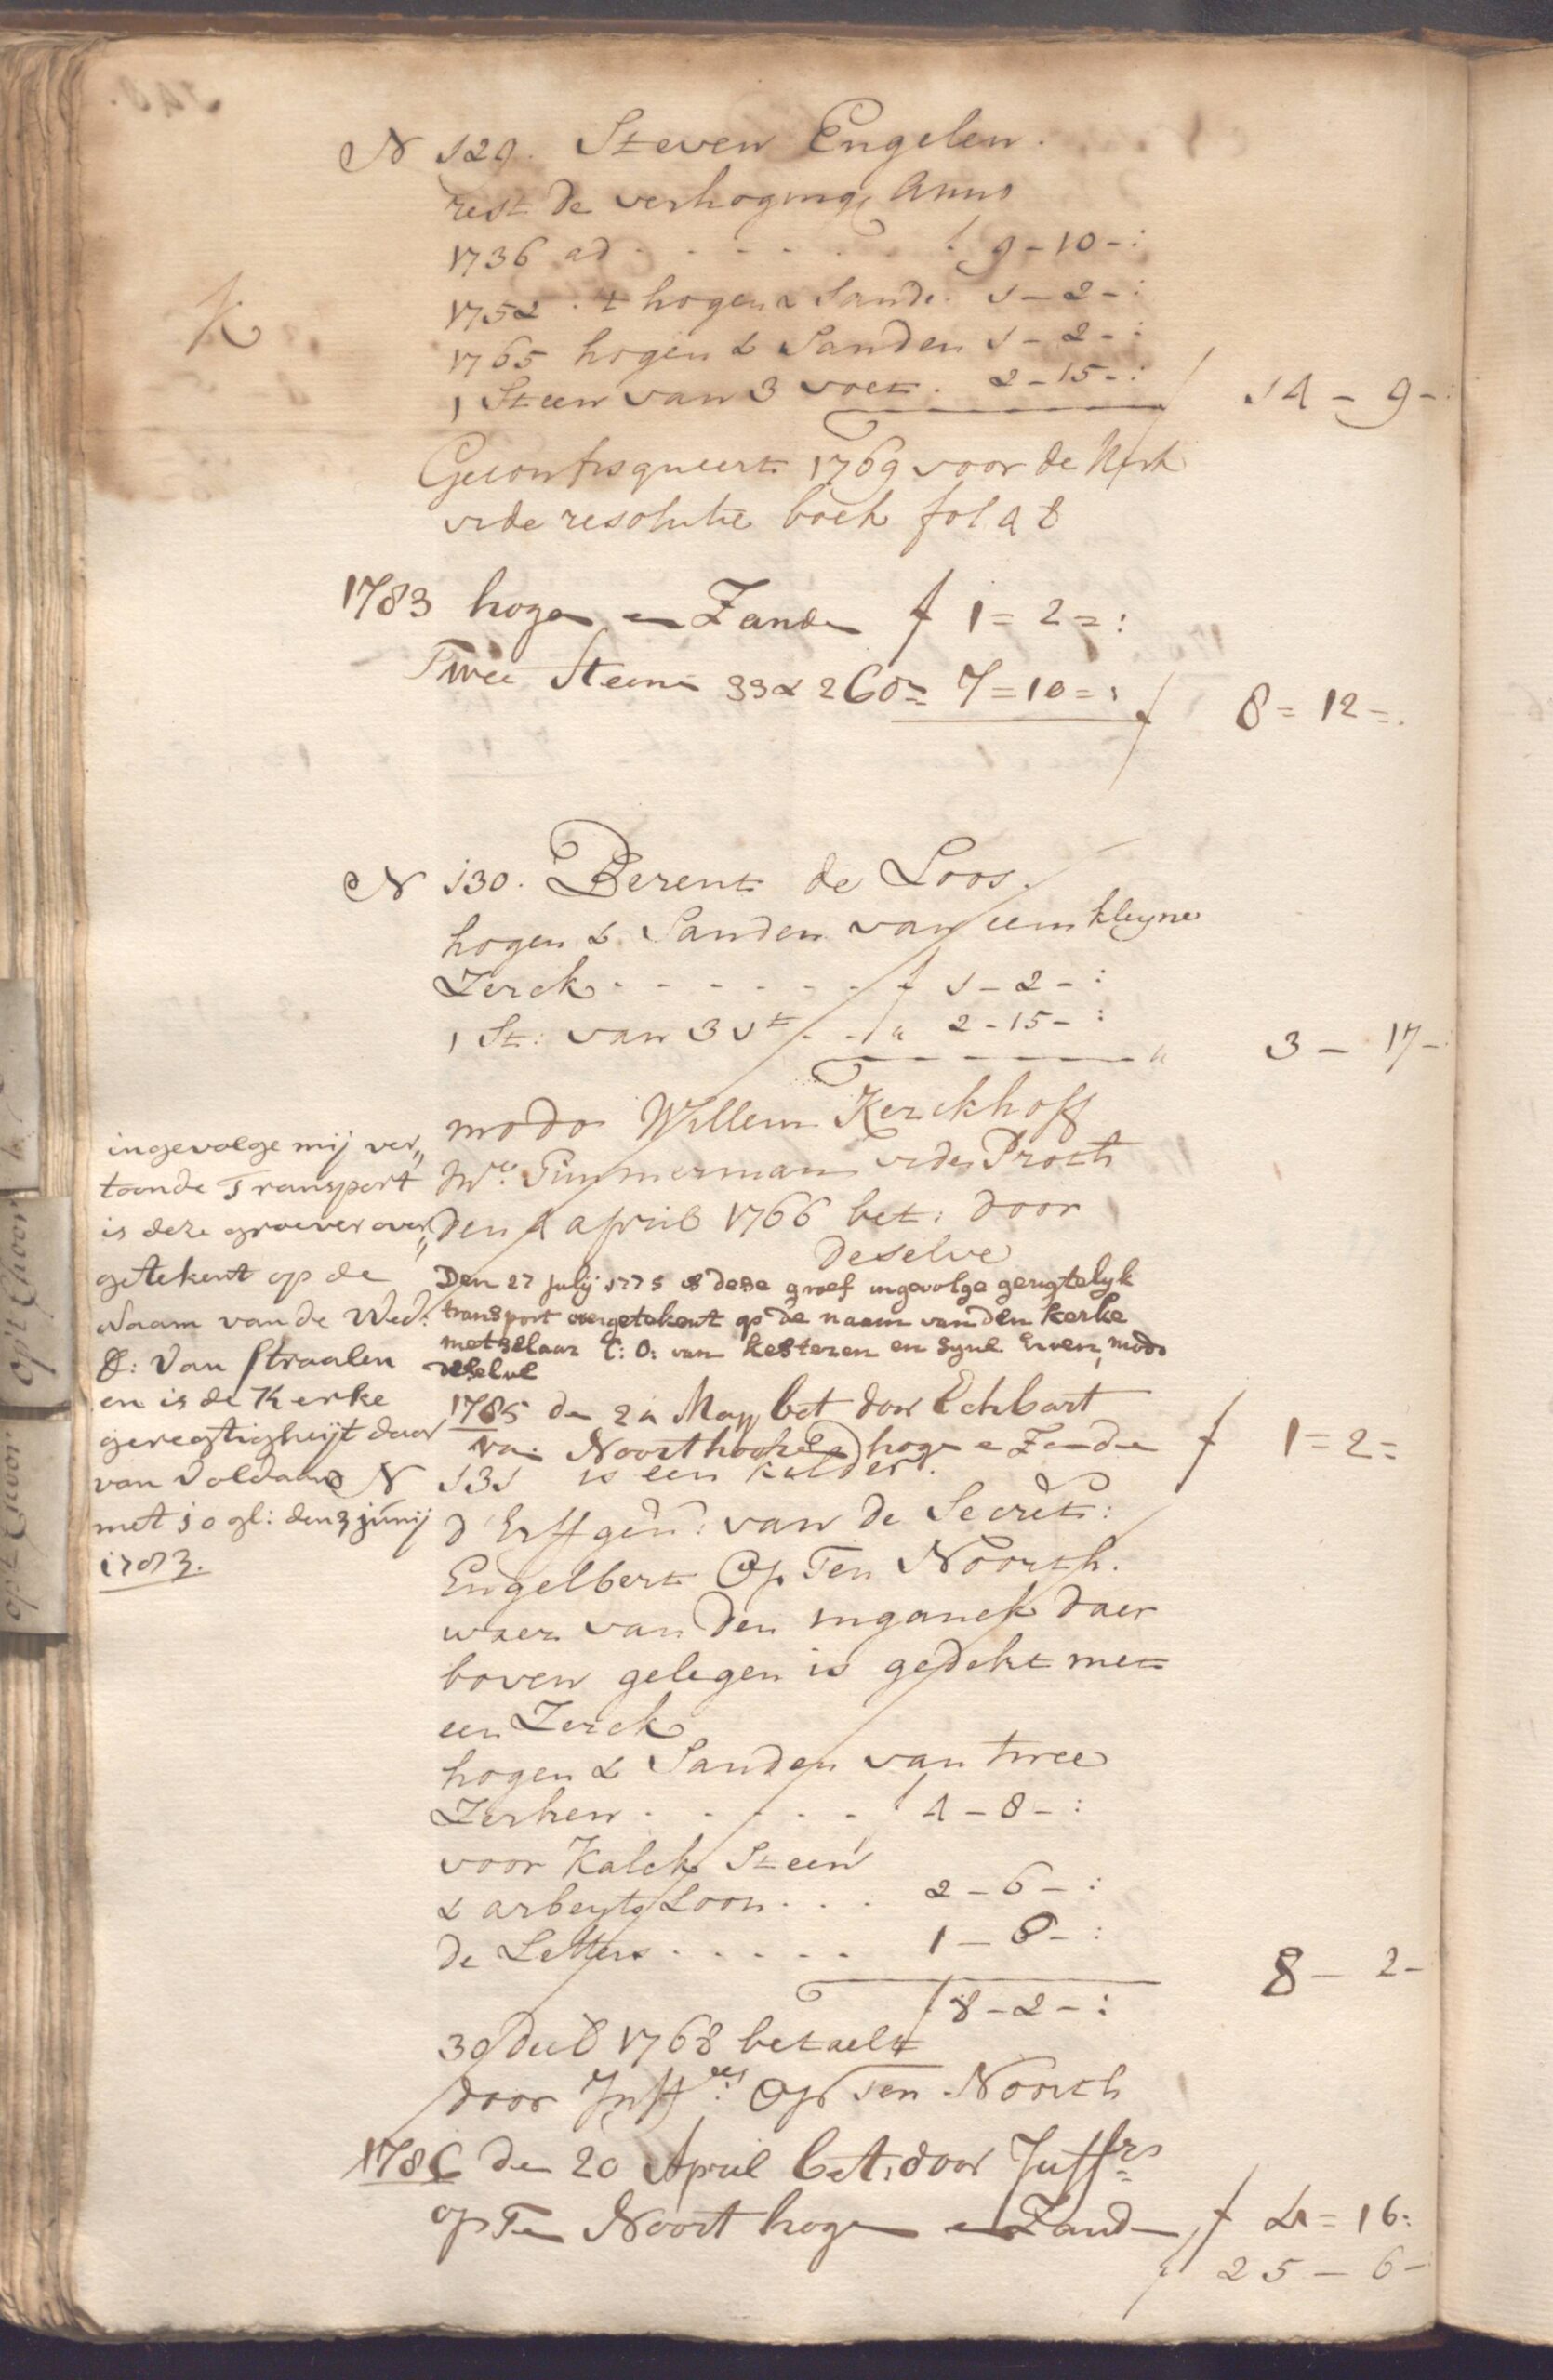 N 129. Steven Engelen.
rest de verhoging Anno
1736 ad . . . . . . f 9-10-:
1752 . t hogen & Sande. 1-2-:
1765 hogen & Sanden 1-2-:
1 Steen van 3 voet. 2-15-: / 14 - 9-:
K
Geconfisqueert 1769 voor de Kerk
vide resolutie boek fol 48
1783 hogen en Zanden f 1=2=:
Twee Steene 7=10=: f 8=12=.
N 130. Berent de Loos.
hogen & Sanden van een kleyne
Zerck . . . . . . . f 1-2-:
1 St: van 3 vt . . " 2-15-: " 3 - 17-:
modo Willem Kerckhoff
Mr. Timmerman vide Proth
den 4 april 1766 bet: door
deselve
Den 27 july 1775 is dese groef ingevolge gerigtelyk
transport overgetekent op de naam van den kerke
metzelaar C: O: van kesteren en syne Erven, modo
deselve
1785 den 24 May bet door Echbert
van Noorthoock hogen e Zanden f 1=2=
ingevolge mij ver„
toonde Transport
is deze groever over„
getekent op de
Naam van de Wed:
E: van Straalen
en is de Kerke
geregtigheijt daar
van voldaan
met 10 gl: den 3 junij
1783.
N 131 is een kelder.
d'Erffgen: van de Secret:
Engelbert Op Ten Noorth.
waer van den inganck daer
boven gelegen is gedekt met
een Zerck
hogen & Sanden van twee
Zerken . . . . . f 4-8-:
voor Kalck Steen
& arbeyts Loon . . . 2-6-:
de Letters . . . . . 1-8-: 8 - 2-
f 8-2-:
30 1768 betaelt
door Juffres: Op Ten Noorth
1786 den 20 April bet: door Juffrs
op Ten Noort hogen en Zanden f 4=16:
f 25-6-